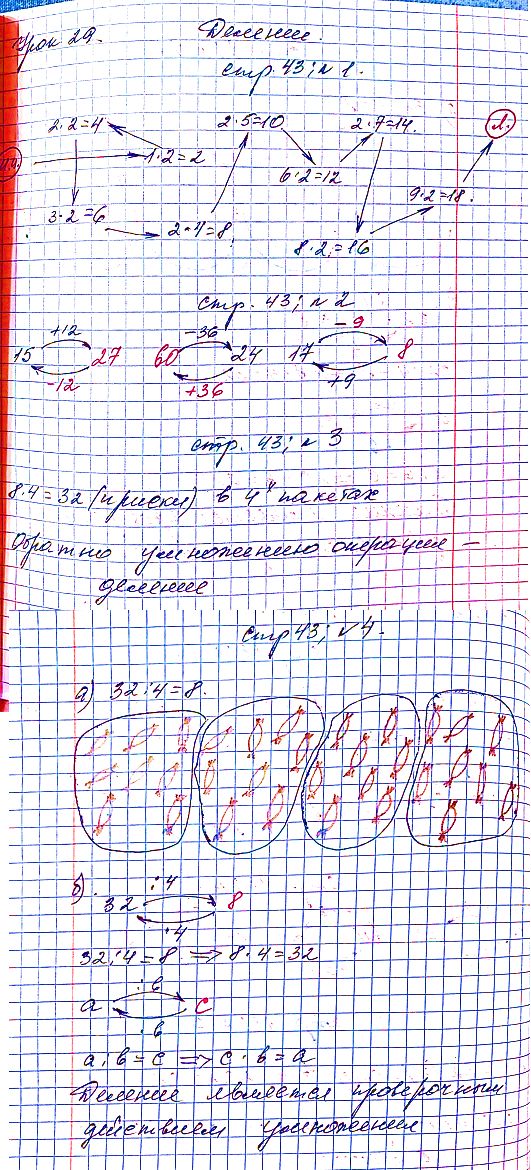 Урок 29.
Деление.
стр. 43; № 1.
2·2=4
2·5=10
2·7=14.
1·2=2
6·2=12
9·2=18.
3·2=6
2·4=8
8·2=16
стр. 43; № 2
+12
15
27
-12
-36
60
24
+36
-9
17
8
+9
стр. 43; № 3
8·4=32 (ириски) в 4х пакетах
Обратно умножению операция —
деление
стр 43; № 4.
а) 32:4=8.
б).
:4
32
8
·4
32:4=8 => 8·4=32
:в
а
с
·в
а:в=с => с·в=а
Деление является проверочным
действием умножения